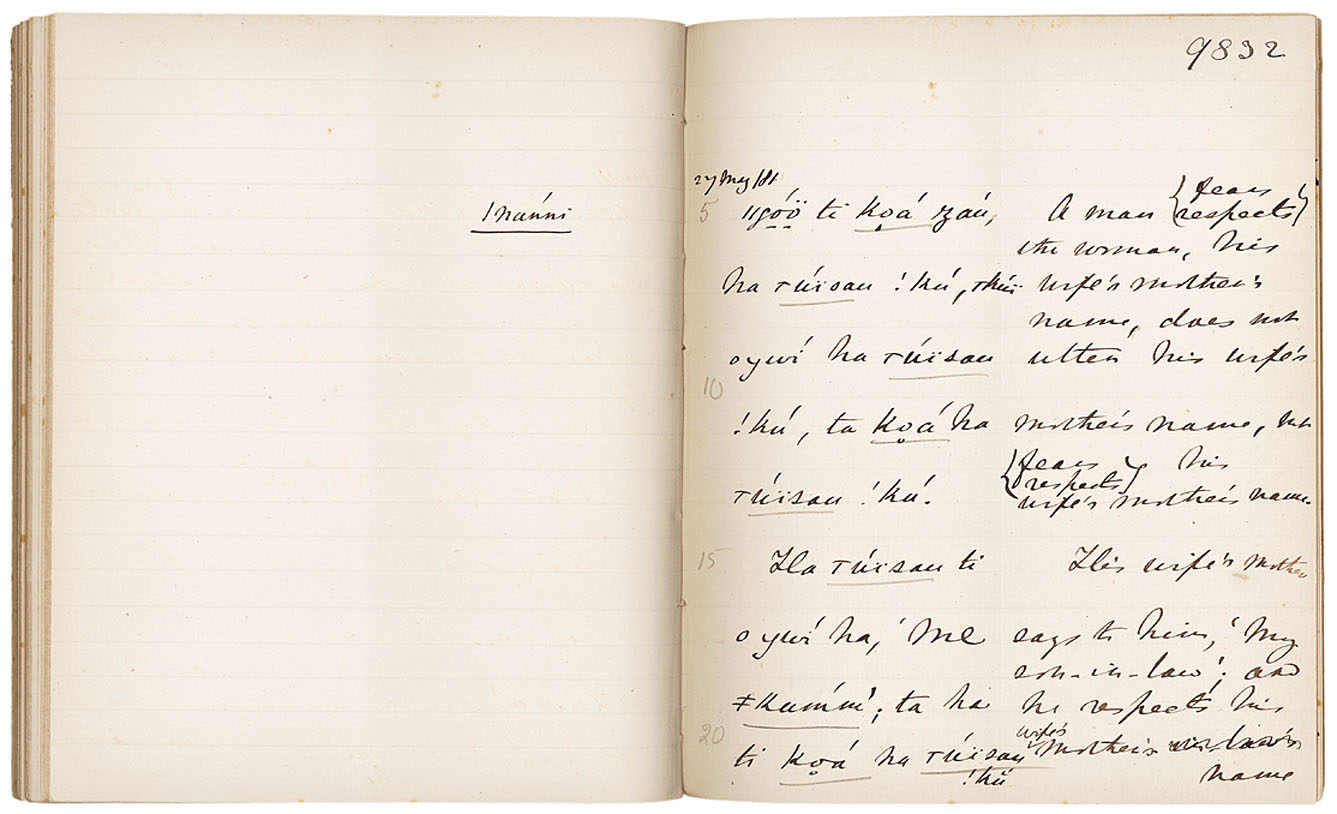 !nańni
9832
27 May /81
5 ‖góö ti ko̱á zaú, A man {fears
respects}
the woman, his
ha túïsau !kú, wife's mother's
name, does not
oywí ha túïsau utter his wife's
10
!kú, ta ko̱á ha mother's name,
{fears
respects} his
túïsau !kú. wife's mother's name.
15 Ha túïsau ti His wife's mother
oywí ha, 'Me says to him, 'My
son-in-law'; and
ǂkumḿ'; ta ha he respects his
20
ti ko̱á ha túïsau wife's mother's in-law's
!kú name